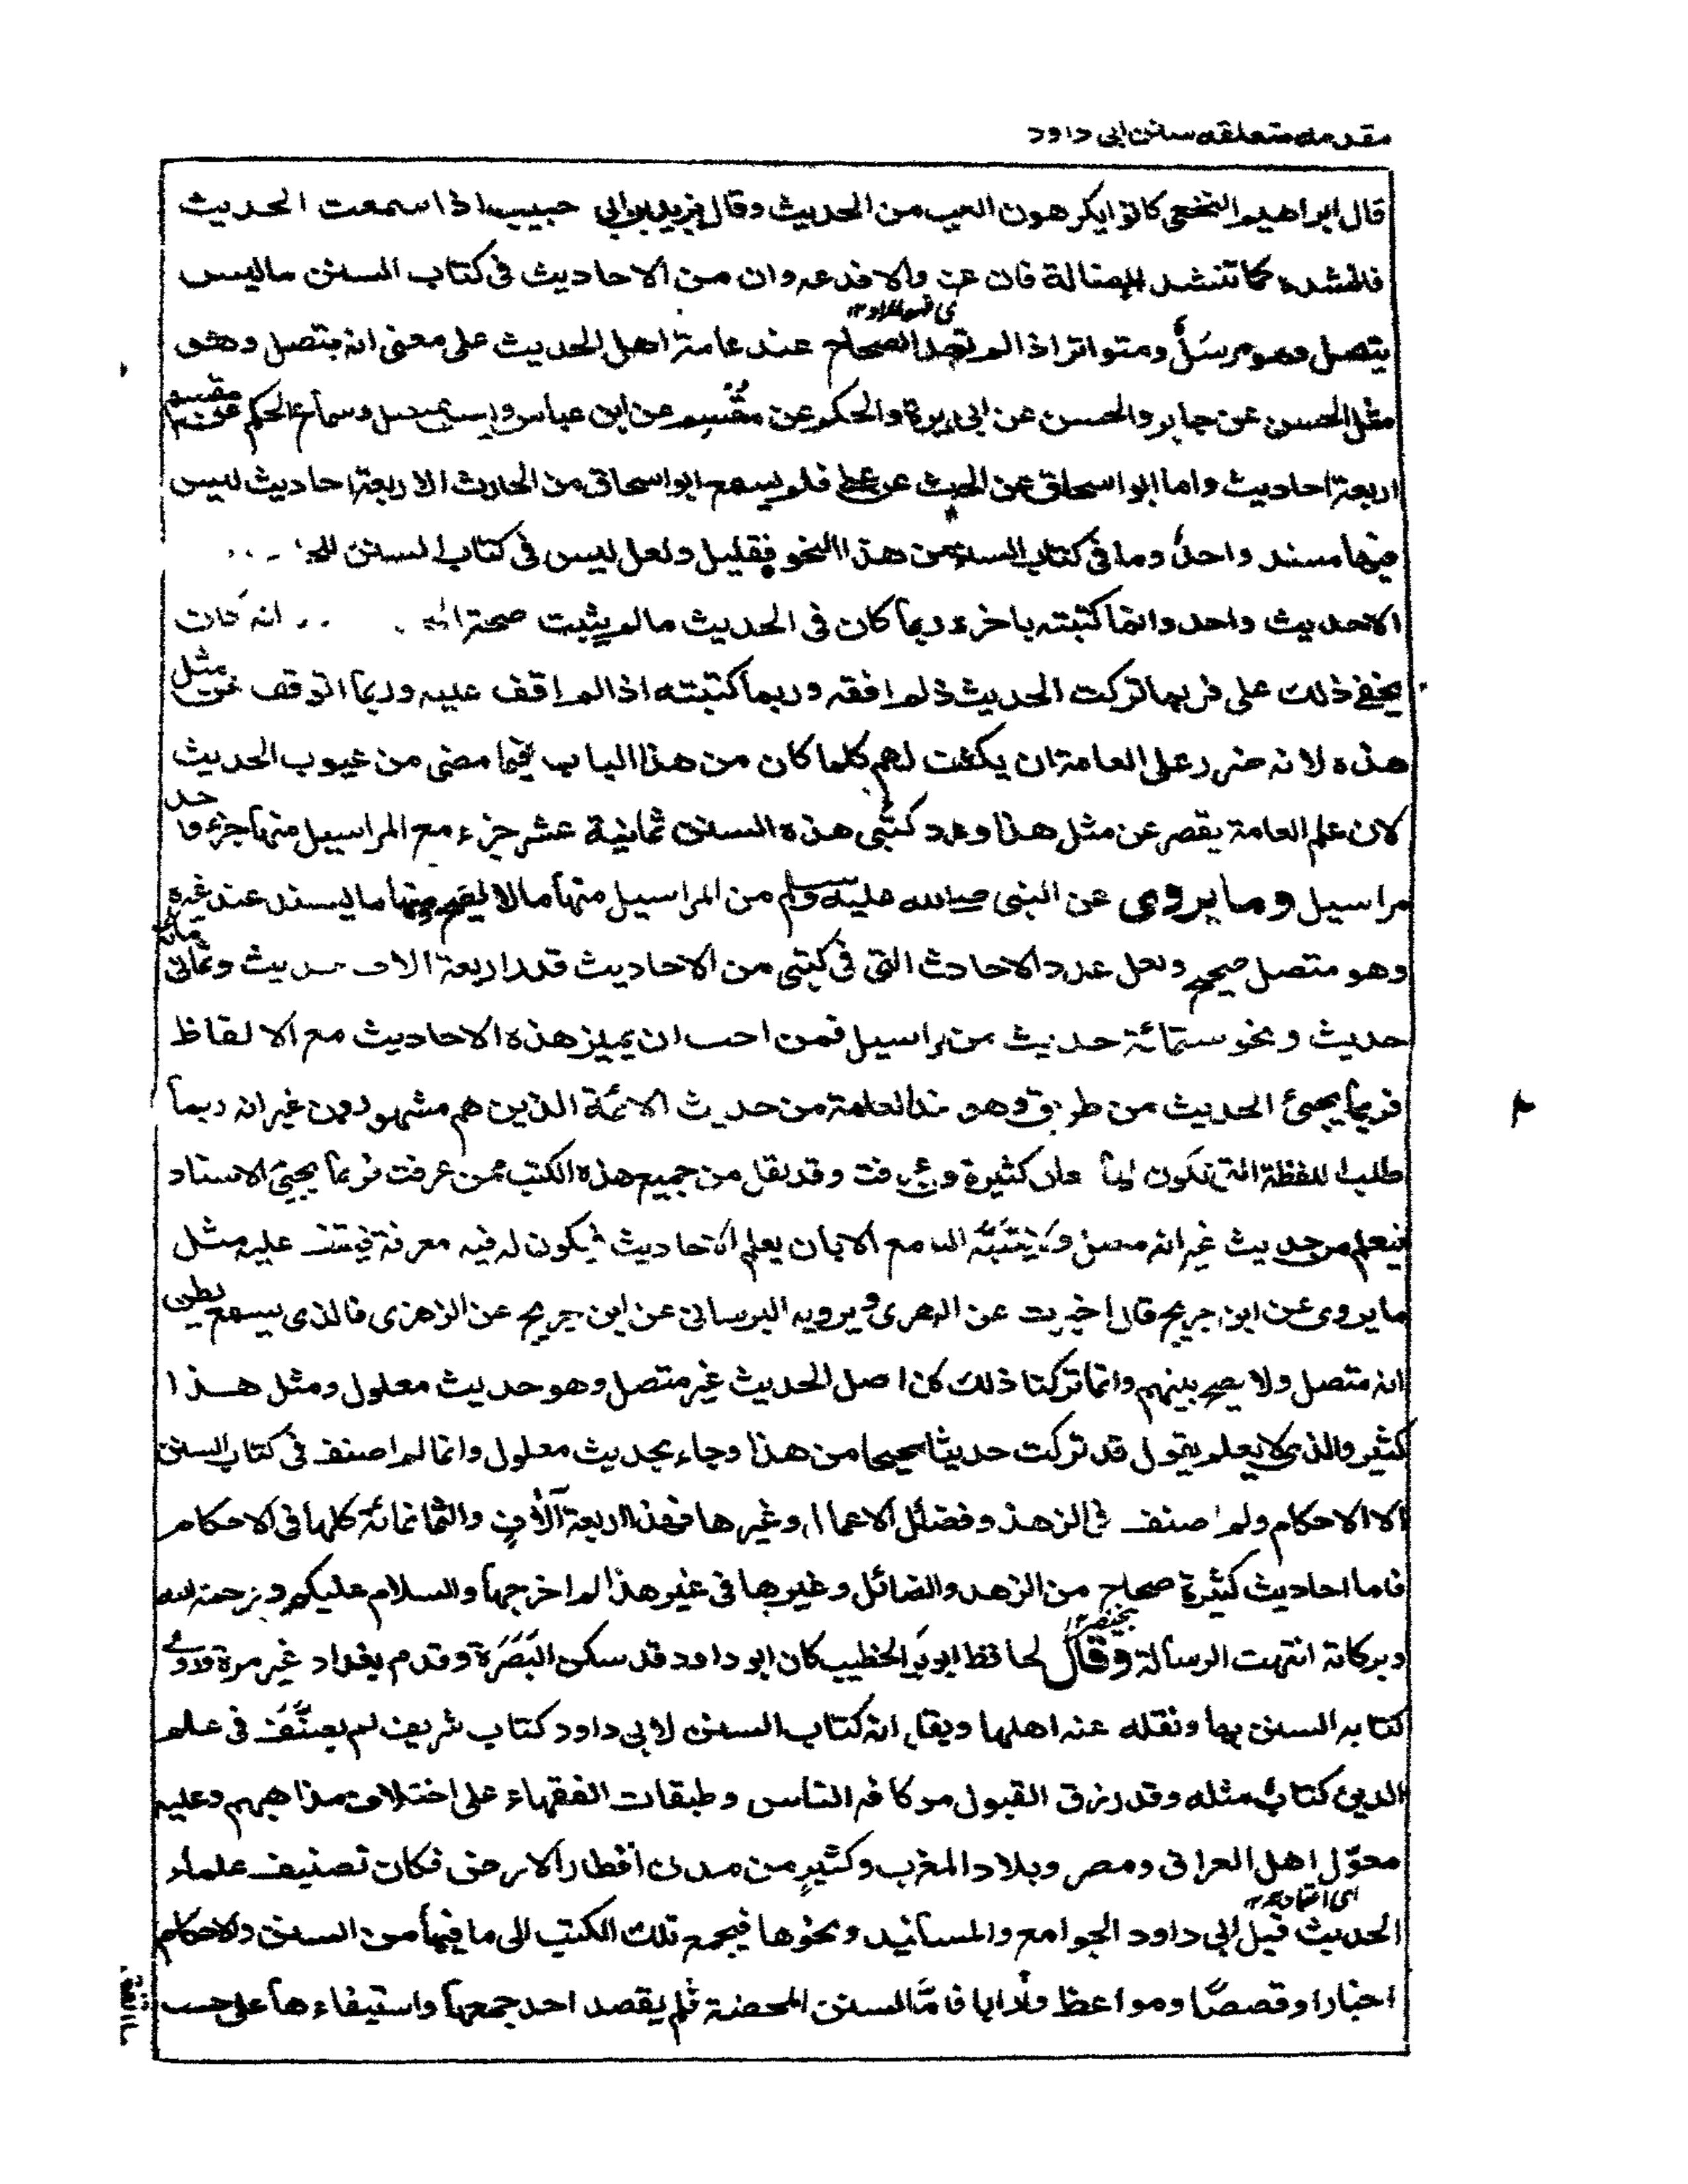 مقدمه متعلقه سنن ابی داود
قال ابراهيم النخعى كانوا يكرهون الغريب من الحديث وقال يزيد بن ابى حبيب اذا سمعت الحديث
فانشده كما تنشد الضالة فان عرف والا فدعه وان من الاحاديث فى كتاب السنن ماليس
يتصل وهو مرسلٌ ومتواتر اذا لم تجد الصحاح عند عامة اهل الحديث على معنى انه متصل وهو
مثل الحسن عن جابر والحسن عن ابى هريرة والحكم عن مقسم عن ابن عباس وليس بمتصل وسماع الحكم عن مقسم
اربعة احاديث واما ابو اسحاق عن الحرث عن على فلم يسمع ابو اسحاق من الحارث الا اربعة احاديث ليس
فيها مسند واحدٌ وما فى كتاب السنن من هذا النحو فقليل ولعل ليس فى كتاب السنن
الاحديث واحد وانما كتبته باخرة وربما كان فى الحديث مالم يثبت صحة انه كان
يخفى ذلك على فربما تركت الحديث اذ لم افقه وربما كتبته اذا لم اقف عليه وربما اتوقف عن مثل
هذه لانه ضرر على العامة ان يكشف لهم كلما كان من هذا الباب فيما مضى من عيوب الحديث
لان علم العامة يقصر عن مثل هذا وعدد كتبى هذه السنن ثمانية عشر جزء مع المراسيل منها جزء واحد
مراسيل وما يروى عن النبى صلى الله عليه وسلم من المراسيل منها ما لا يصح ومنها ما يسند عند غيره
وهو متصل صحيح ولعل عدد الاحادث التى فى كتبى من الاحاديث قدر اربعة الاف حديث وثمانى مائة
حديث ونحو ستمائة حديث من مراسيل فمن احب ان يميز هذه الاحاديث مع الالفاظ
فربما يجئ الحديث من طريق وهو عند العامة من حديث الائمة الذين هم مشهورون غير انه ربما
طلب اللفظة التى تكون لها معان كثيرة وممن عرفت وقد نقل من جميع هذه الكتب ممن عرفت فربما يجئ الاسناد
فيعلم من حديث غيره انه متصل ولا يتنبه السامع الا بان يعلم الاحاديث فيكون له فيه معرفة فيقف عليه مثل
ما يروى عن ابن جريج قال اخبرت عن الزهرى ويرويه البرسانى عن ابن جريج عن الزهرى فالذى يسمع يظن
انه متصل ولا يصح بينهم وانما تركنا ذلك لان اصل الحديث غير متصل وهو حديث معلول ومثل هذا
كثير والذى لا يعلم يقول قد تركت حديثا صحيحا من هذا وجاء بحديث معلول وانما لم اصنف فى كتاب السنن
الا الاحكام ولم اصنف فى الزهد وفضائل الاعمال وغيرها فهذا اربعة آلاف والثمانمائة كلها فى الاحكام
فاما احاديث كثيرة صحاح من الزهد والفضائل وغيرها فى غير هذا لم اخرجها والسلام عليكم ورحمة الله
وبركاته انتهت الرسالة وقال الحافظ ابو بكر الخطيب كان ابو داود قد سكن البَصَرَة وقدم بغداد غير مرة وروى
كتابه السنن بها ونقله عنه اهلها ويقال انه كتاب السنن لابى داود كتاب شريف لم يصنَّف فى علم
الدين كتابٌ مثله وقد رزق القبول من كافة الناس وطبقات الفقهاء على اختلاف مذاهبهم وعليه
معوّل اهل العراق ومصر وبلاد المغرب وكثيرٍ من مدن اقطار الارض فكان تصنيف علماء
الحديث قبل ابى داود الجوامع والمسانيد ونحوها فيجمع تلك الكتب الى ما فيها من السنن والاحكام
اخبارا وقصصًا ومواعظ وأدابا فامّا السنن المحضة فلم يقصد احد جمعها واستيفاءها على حسب